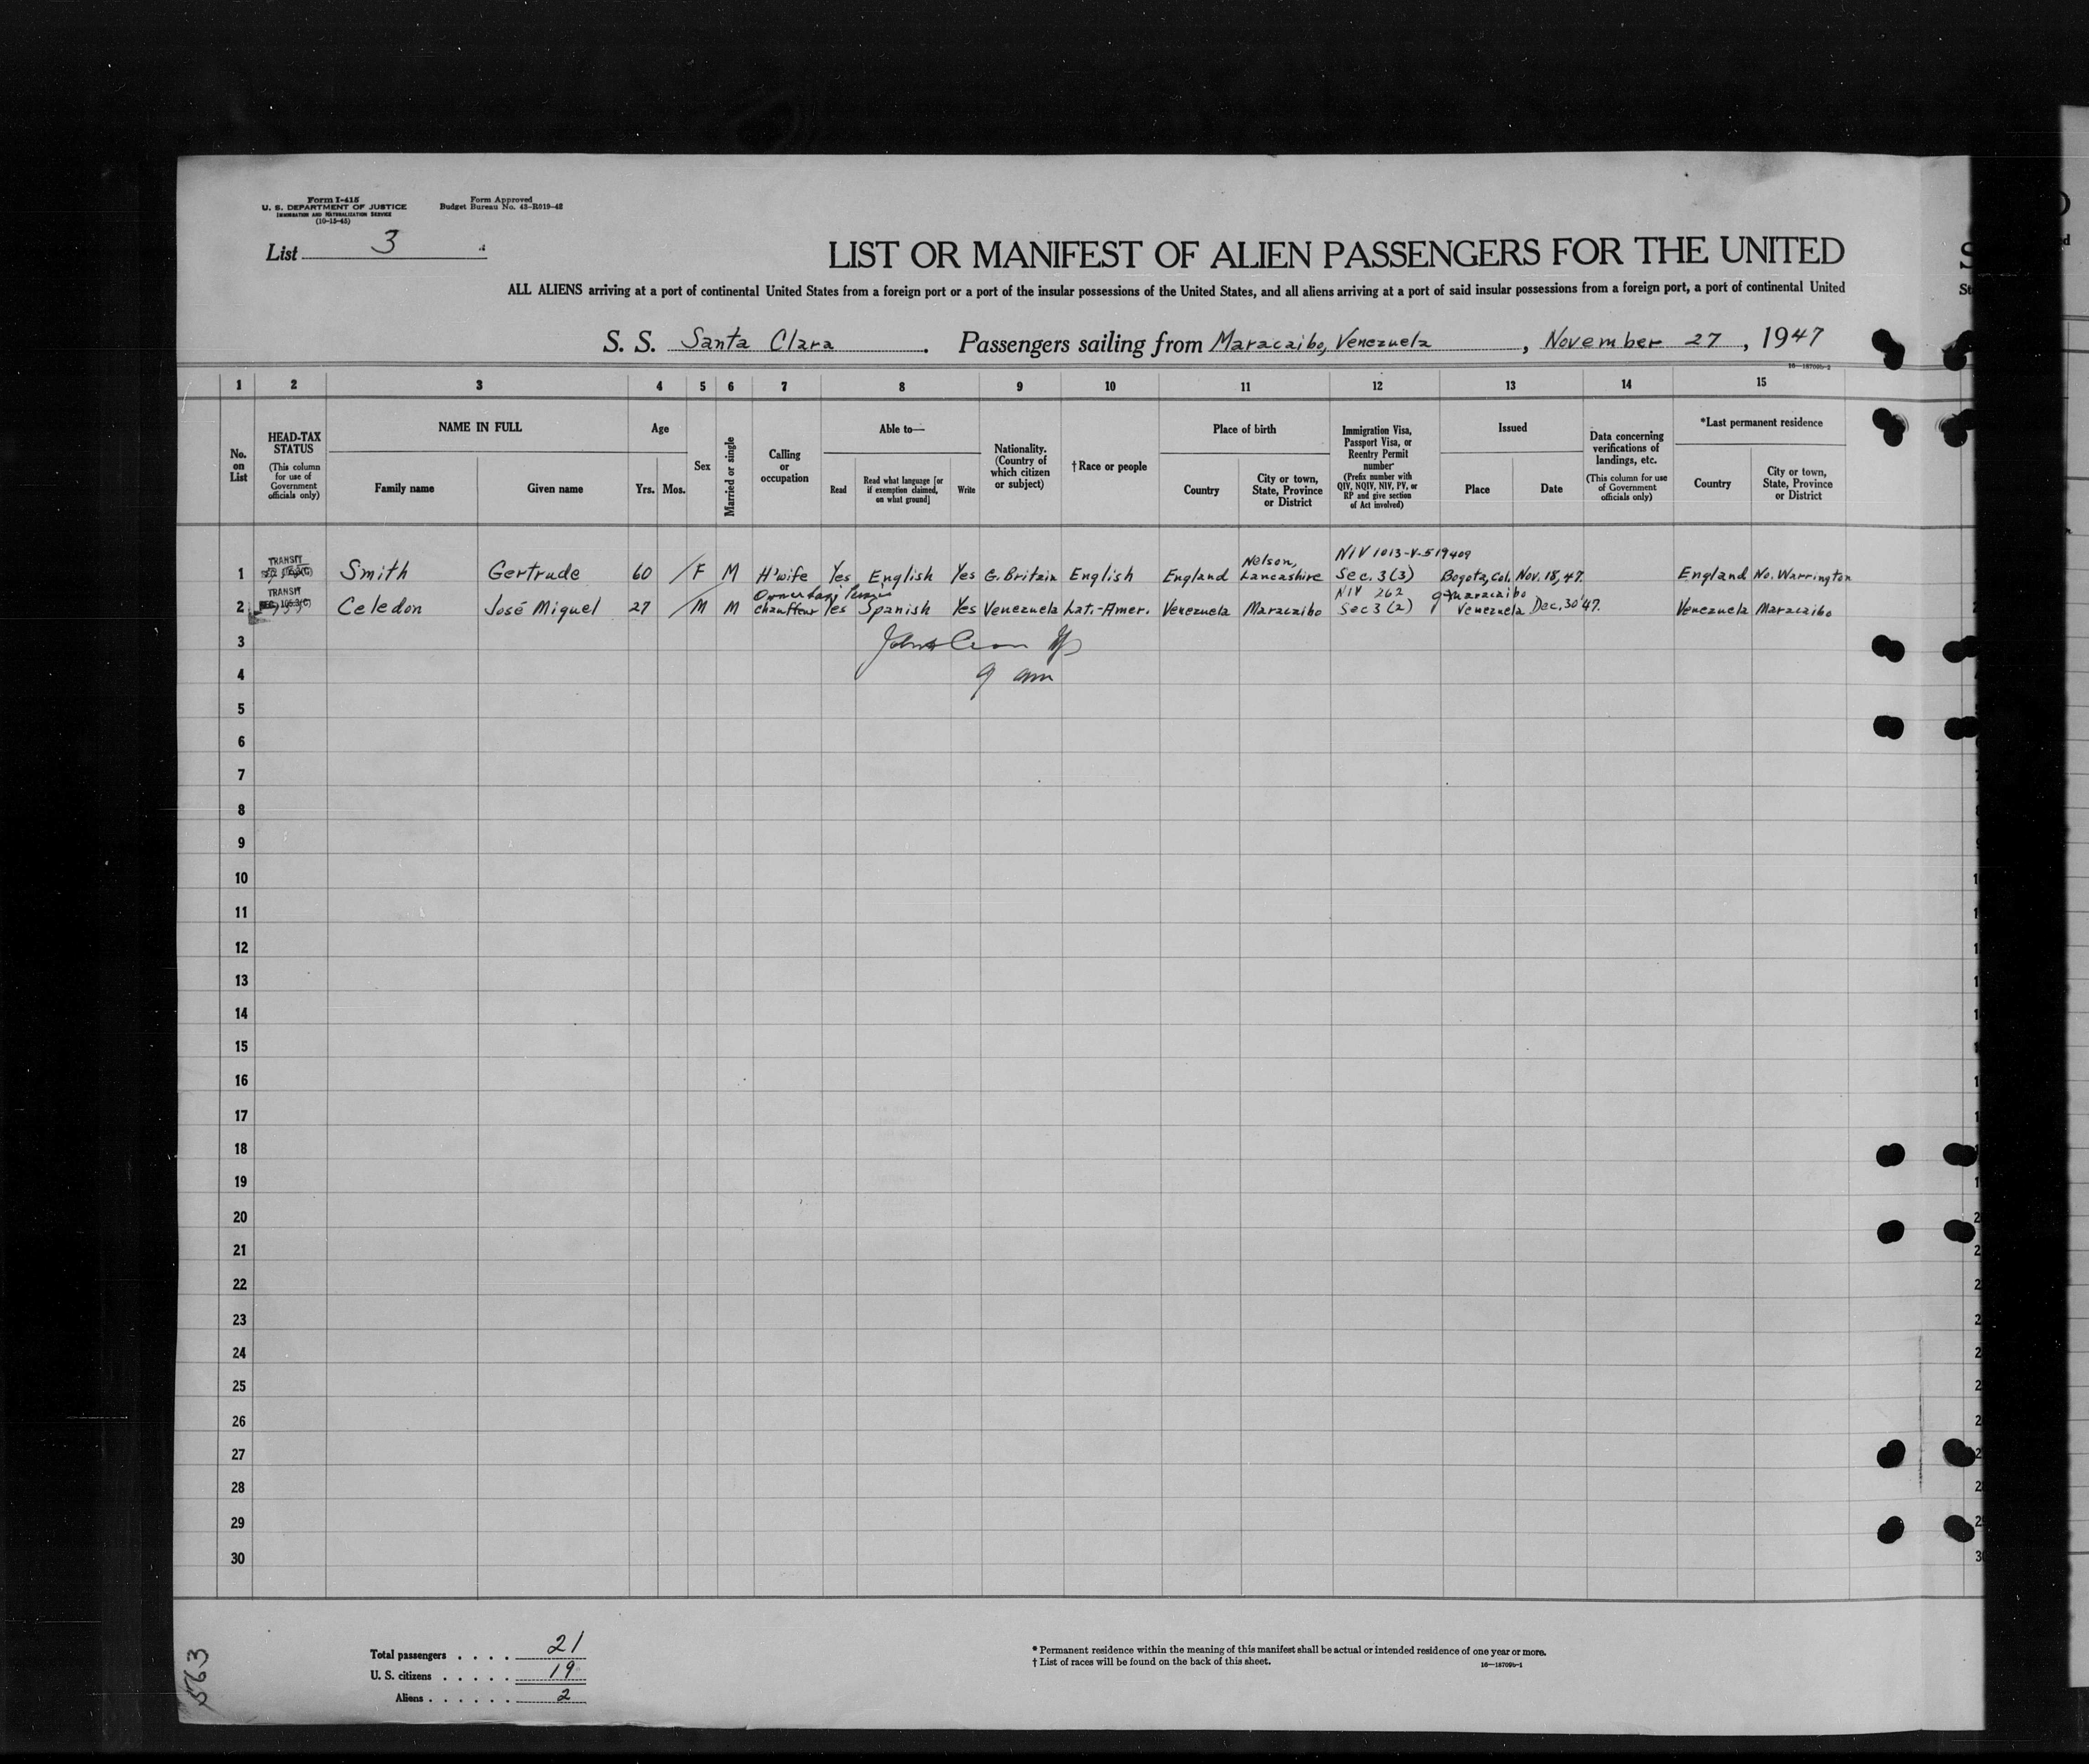 Form I-415
U. S. DEPARTMENT OF JUSTICE
IMMIGRATION AND NATURALIZATION SERVICE
(10-15-45)
Form Approved
Budget Bureau No. 43-R019-42
List 3
LIST OR MANIFEST OF ALIEN PASSENGERS FOR THE UNITED
ALL ALIENS arriving at a port of continental United States from a foreign port or a port of the insular possessions of the United States, and all aliens arriving at a port of said insular possessions from a foreign port, a port of continental United
S. S. Santa Clara. Passengers sailing from Maracaibo, Venezuela, November 27, 1947
16—18709b-2
1 2 3 4 5 6 7 8 9 10 11 12 13 14 15
No. on List
HEAD-TAX STATUS
(This column for use of Government officials only)
NAME IN FULL
Family name Given name
Age
Yrs. Mos.
Sex
Married or single
Calling or occupation
Able to—
Read
Read what language [or if exemption claimed, on what ground]
Write
Nationality. (Country of which citizen or subject)
† Race or people
Place of birth
Country
City or town, State, Province or District
Immigration Visa, Passport Visa, or Reentry Permit number
(Prefix number with QIV, NQIV, NIV, PV, or RP and give section of Act involved)
Issued
Place Date
Data concerning verifications of landings, etc.
(This column for use of Government officials only)
*Last permanent residence
Country
City or town, State, Province or District
TRANSIT Nelson, NIV 1013-V-519409
1 Smith Gertrude 60 F M H'wife Yes English Yes G. Britain English England Lancashire Sec. 3(3) Bogota, Col. Nov. 18, 47. England No. Warrington
TRANSIT Owner NIV 262 Maracaibo
2 Celedon José Miguel 27 M M chauffeur Yes Spanish Yes Venezuela Lat.-Amer. Venezuela Maracaibo Sec 3 (2) Venezuela Dec. 30 '47. Venezuela Maracaibo
3
4 9 am
5
6
7
8
9
10
11
12
13
14
15
16
17
18
19
20
21
22
23
24
25
26
27
28
29
30
Total passengers . . . . 21
U. S. citizens . . . . . 19
Aliens . . . . . . 2
* Permanent residence within the meaning of this manifest shall be actual or intended residence of one year or more.
† List of races will be found on the back of this sheet.
16—18709b-1
563